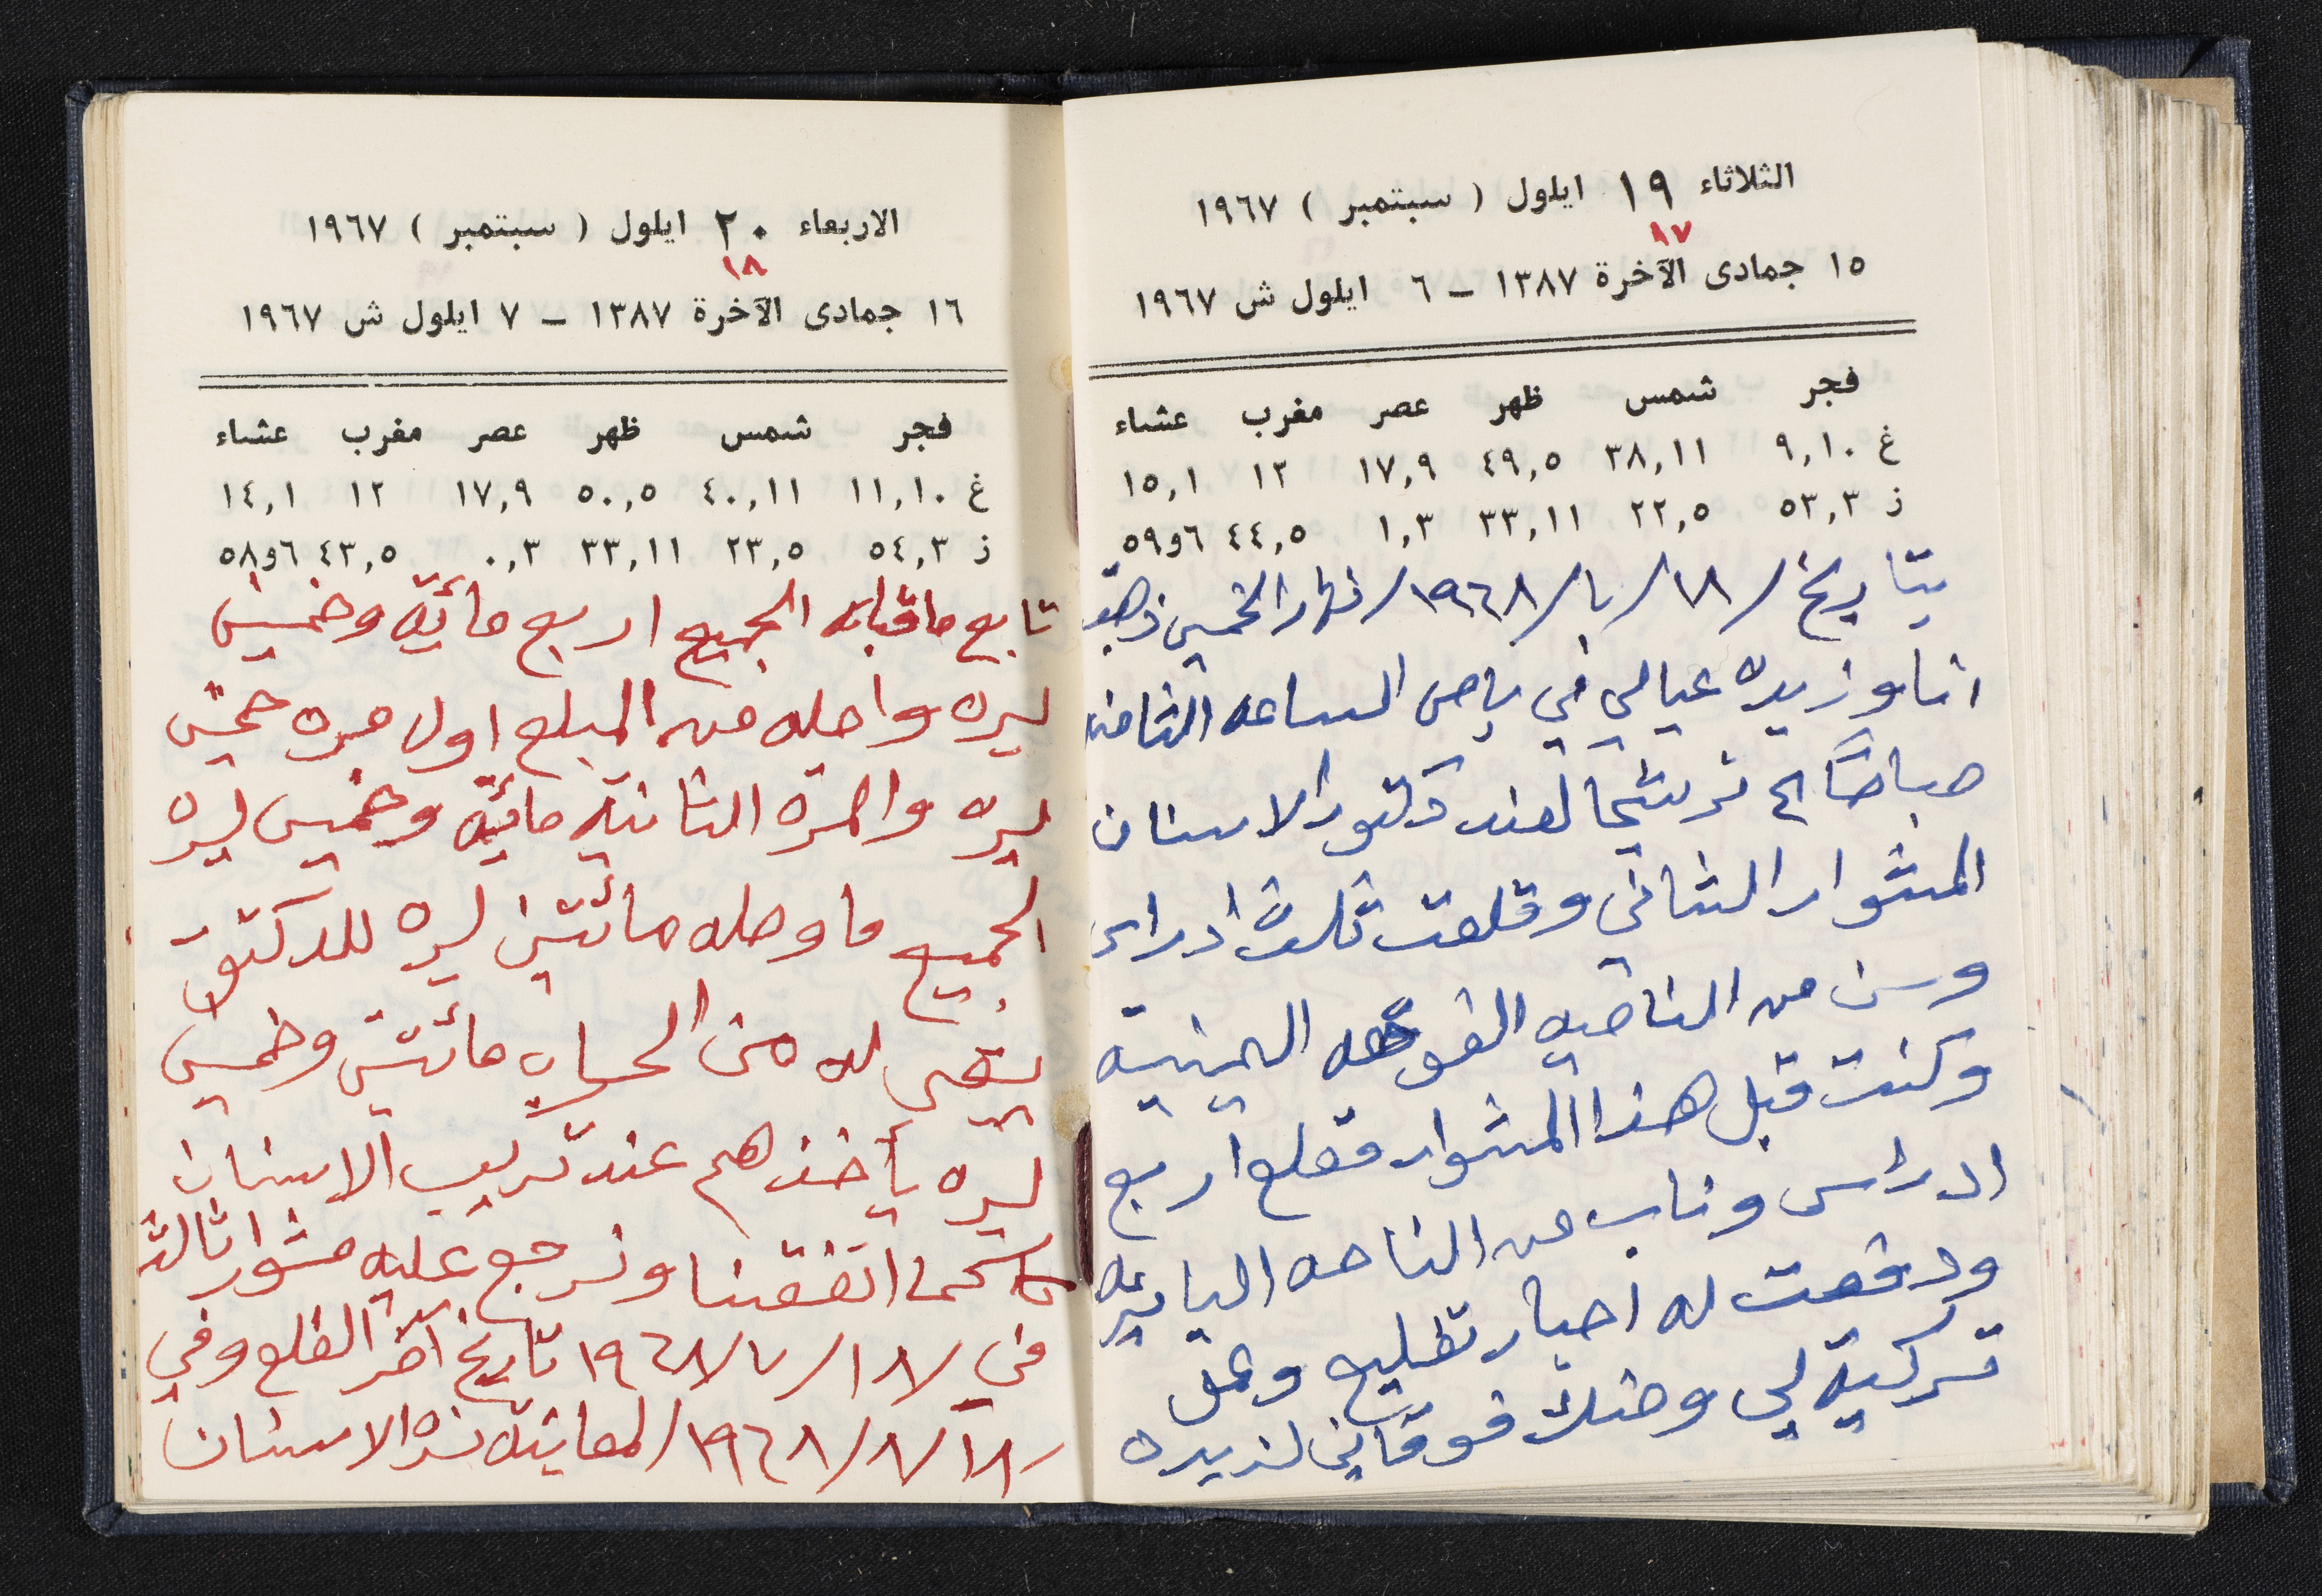 الثلاثاء ١٩ ايلول ( سبتمبر ) ١٩٦٧
١٧
١٥ جمادى الآخرة ١٣٨٧ – ٦ ايلول ش ١٩٦٧
فجر شمس ظهر عصر مغرب عشاء
غ ٩,١٠ ٣٨,١١ ٤٩,٥ ١٧,٩ ١٢ ١٥,١
ز ٥٣,٣ ٢٢,٥ ٣٣,١١ ١,٣ ٤٤,٥ ٥٩و٦
بتاريخ /١٨/٧/١٩٦٨/ نهار الخميس ذهبت
انا وزيده عيالي في باص الساعه الثامنه
صباحًا الى ترشيحا لعند دكتور الاسنان
المشوار الثاني وقلعت ثلاث ادراس
وسن من الناحيه الفوقه اليمنية
وكنت قبل هذا المشوار مقلع اربع
ادراس وناب من الناحه اليا
ودفعت له اجار تقليع وعمل
تركية لي وحنك فوقاني لزيده
الاربعاء ٢٠ ايلول ( سبتمبر ) ١٩٦٧
١٨
١٦ جمادى الآخرة ١٣٨٧ – ٧ ايلول ش ١٩٦٧
فجر شمس ظهر عصر مغرب عشاء
غ ١١,١٠ ٤٠,١١ ٥٠,٥ ١٧,٩ ١٢ ١٤,١
ز ٥٤,٣ ٢٣,٥ ٣٣,١١ ٠,٣ ٤٣,٥ ٥٨و٦
تابع ماقباله الجميع اربع مائة وخمسين
ليره واصله من المبلع اول مره خمسين
ليره والمرة الثانية مائة وخمسين ليره
الجميع ما وصله مائتين ليره للدكتور
يبقى له من الحساب مائتين وخمسين
ليره يأخذهم عند تركيب الاسنان
اتفقنا ونرجع عليه مشوار ثالث
في /١٨/٧/١٩٦٨ تاريخ آخر القلع وفي
/١٨/٨/١٩٦٨/ لمعاينة الاسنان